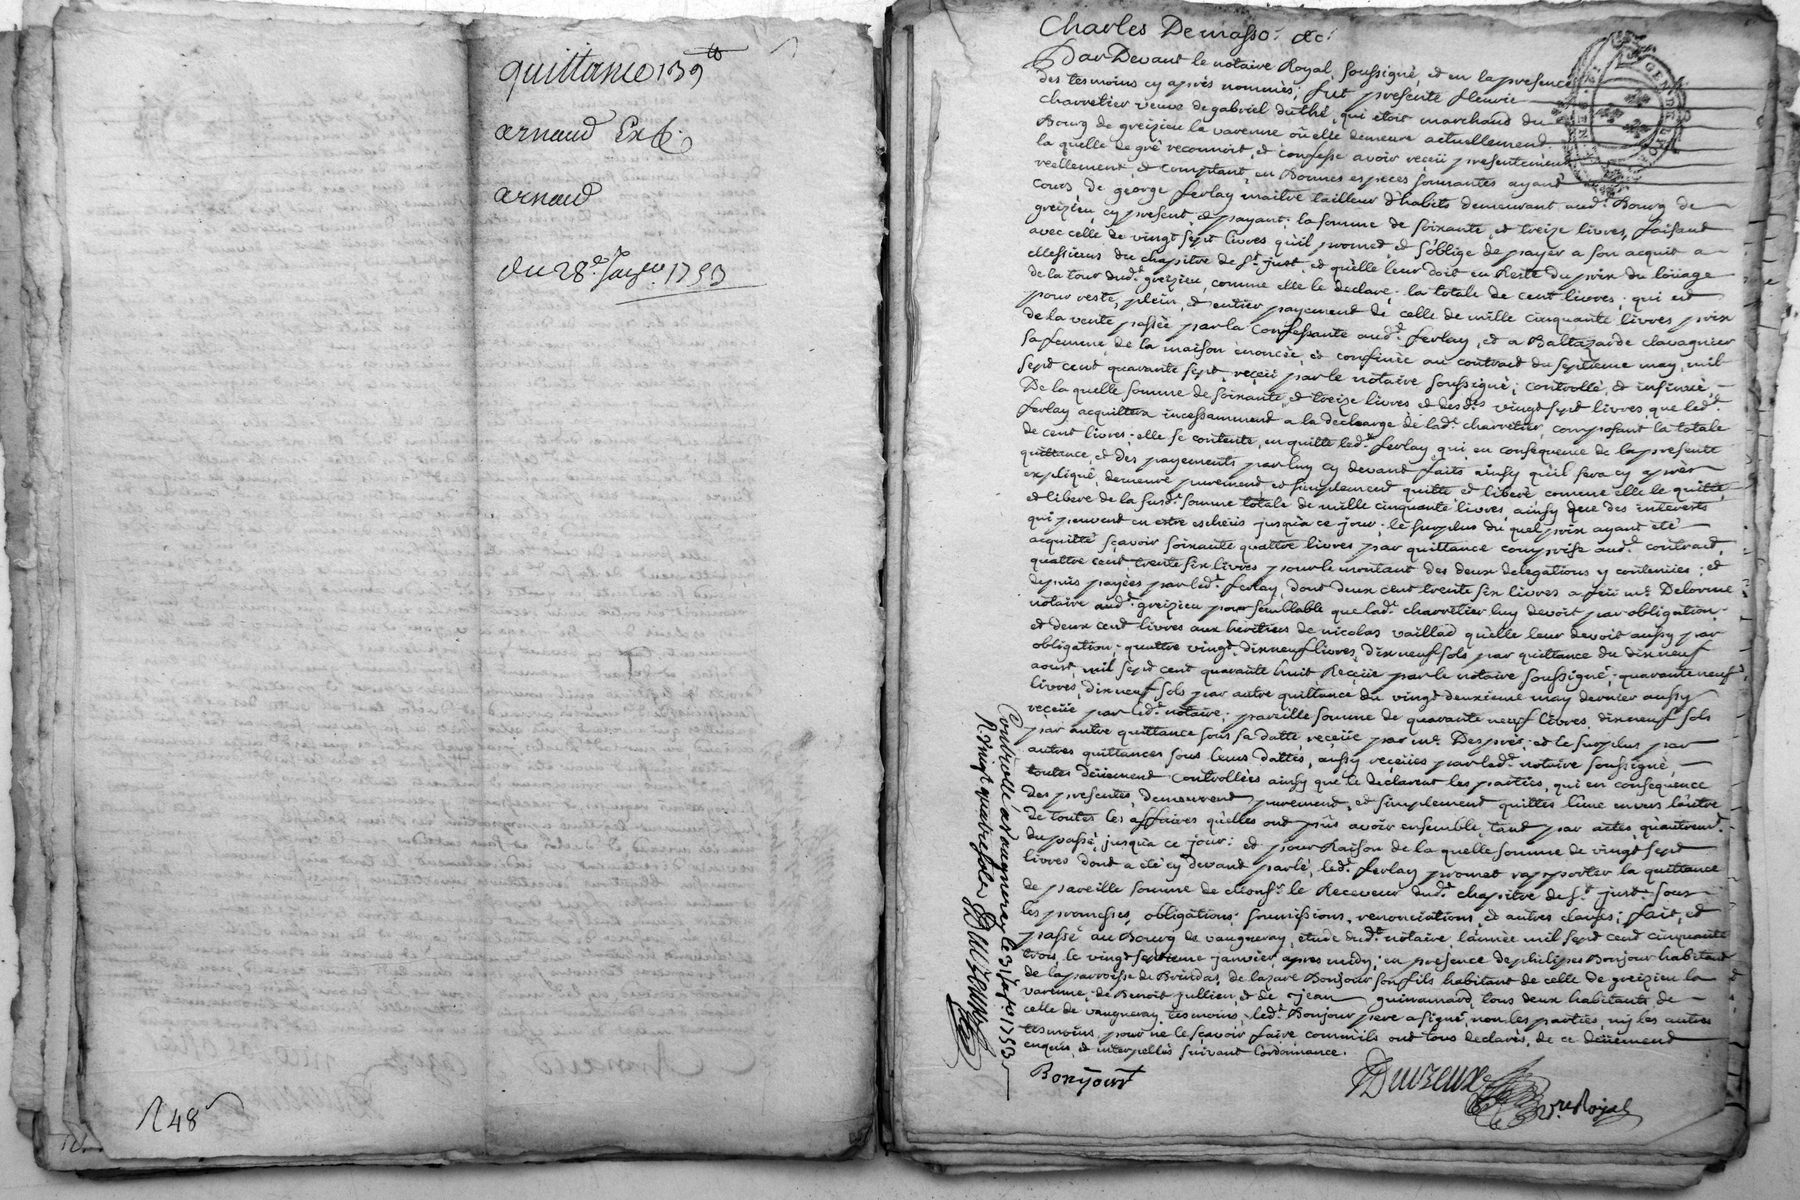 quittance 139 ₶
arnaud Exp.
arnaud
du 28e Janver 1753
N 48
Charles Demasso &c.
Par Devant le notaire Royal soussigné, et en la presence
des tesmoins cy après nommés; fut presente fleurie
charretier veuve de gabriel duthé, qui étoit marchand du
Bourg de greizieu la varenne où elle demeure actuellement.
la quelle de gré reconnoit, et confesse avoir reçeü presentement
reellement, et comptant, en Bonnes especes sonnantes ayant
cours, de george ferlay maitre tailleur d'habits demeurant aud. Bourg de
greizieu cy present, et payant: la somme de soixante, et treize livres, faisant
avec celle de vingt sept livres qu'il promet et s'oblige de payer a son acquit a
Messieurs du chapitre de St. just, et qu'elle leur doit en Reste du prix du loüage
de la tour dud. greizieu, comme elle le declare; la totale de cent livres, qui est
pour reste, plein, et entier payement de celle de mille cinquante livres prix
de la vente passée par la Confessante aud. ferlay, et a Baltazarde clavagnier
sa femme, de la maison enoncée, et confinée au contract du septieme may, mil
sept cent quarante sept, reçeü par le notaire soussigné; controllé, et insinué.
De la quelle somme de soixante, et treize livres et desd. vingt sept livres que led.
ferlay acquittera incessamment a la decharge de lad. charretier, composant la totale
de cent livres; elle se contente, en quitte led. ferlay qui en consequence de la presente
quittance, et des payements par luy cy devant faits ainsy qu'il sera cy après
expliqué, demeure purement et simplement quitte et liberé comme elle le quitte,
et libere de la susd. somme totale de mille cinquante livres, ainsy que des interests
qui peuvent en estre escheüs jusqu'a ce jour; le surplus du quel prix ayant été
acquitté sçavoir soixante quattre livres par quittance comprise aud. contract,
quattre cent, trente six livres pour le montant des deux delegations y contenües; et
depuis payées par led. ferlay, dont deux cent trente six livres a feü me. Delorme
notaire aud. greizieu pour semblable que lad. charretier luy devoit par obligation.
et deux cent livres aux heritiers de nicolas vaillad qu'elle leur devoit aussy par
obligation; quattre vingt, dix neuf livres, dix neuf sols par quittance du dix neuf
aoust, mil sept cent quarante huit Reçeüe par le notaire soussigné; quarante neuf
livres, dix neuf sols par autre quittance du vingt deuxieme may dernier aussy
reçeüe par led. notaire; pareille somme de quarante neuf livres, dix neuf sols
par autre quittance sous sa datte reçeüe par me. Després; et le surplus par
autres quittances sous leurs dattes, aussy receües par led. notaire soussigné,
toutes deüement Controllées ainsy que le declarent les parties, qui en consequence
des presentes, demeurent purement, et simplement quittes l'une envers l'autre
de toutes les affaires qu'elles ont pûs avoir ensemble, tant par actes, qu'autremt.
du passé, jusqu'a ce jour: et pour Raison de la quelle somme de vingt sept
livres dont a été cy devant parlé, led. ferlay promet rapporter la quittance
de pareille somme de Monsr. le Receveur dud. chapitre de St. just. sous
les promesses, obligations, soumissions, renonciations, et autres clauses; fait, et
passé au Bourg de vaugneray, etude dud. notaire, l'année mil sept cent cinquante
trois, le vingt septieme janvier, après midy; en presence de philipes Bonjour habitant
de la parroisse de Brindas, de lazare Bonjour son fils habitant de celle de greizieu la
varenne, de Benoit jullien, et de jean guinamard, tous deux habitants de
celle de vaugneray, tesmoins; led. Bonjour pere a signé, non les parties, ny les autres
tesmoins, pour ne le sçavoir faire comm'ils ont tous declarés, de ce deüement
enquis, et interpellés suivant l'ordonnance.
Bonjour
Duvzeux
Nre Royal
Controllé a vaugneray le 31 janvr. 1753
R. vingt quatre sols